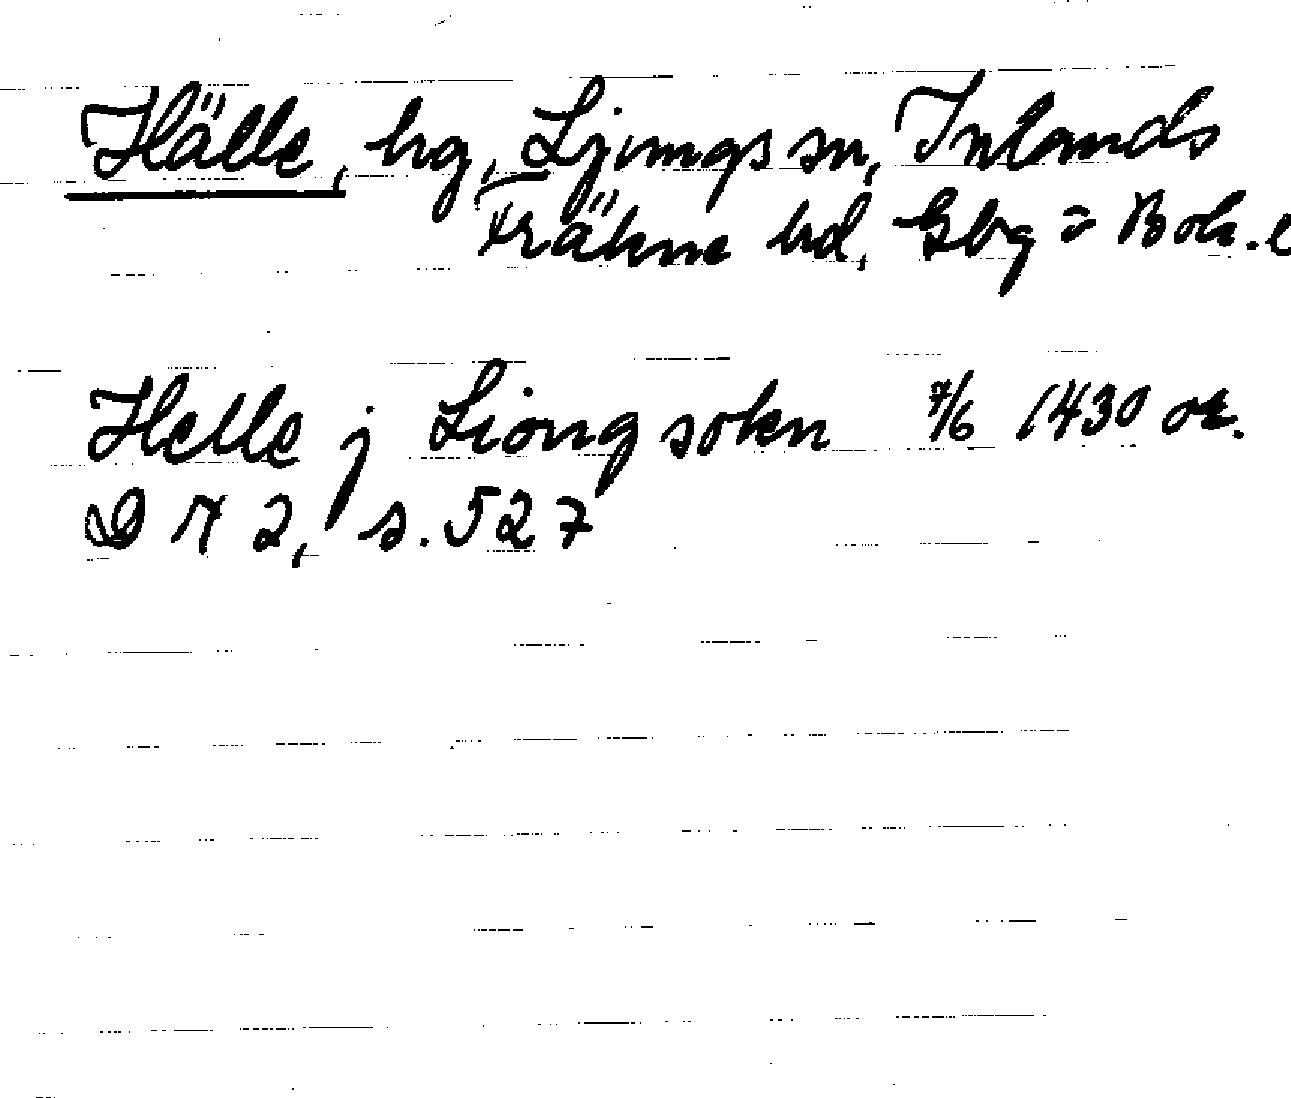 Hälle, hg, Ljungs sn, Inlands
Fräkne hd, Gbg = Boh. l
Helle j Liong sokn 7/6 1430 or.
DN 2, s. 527